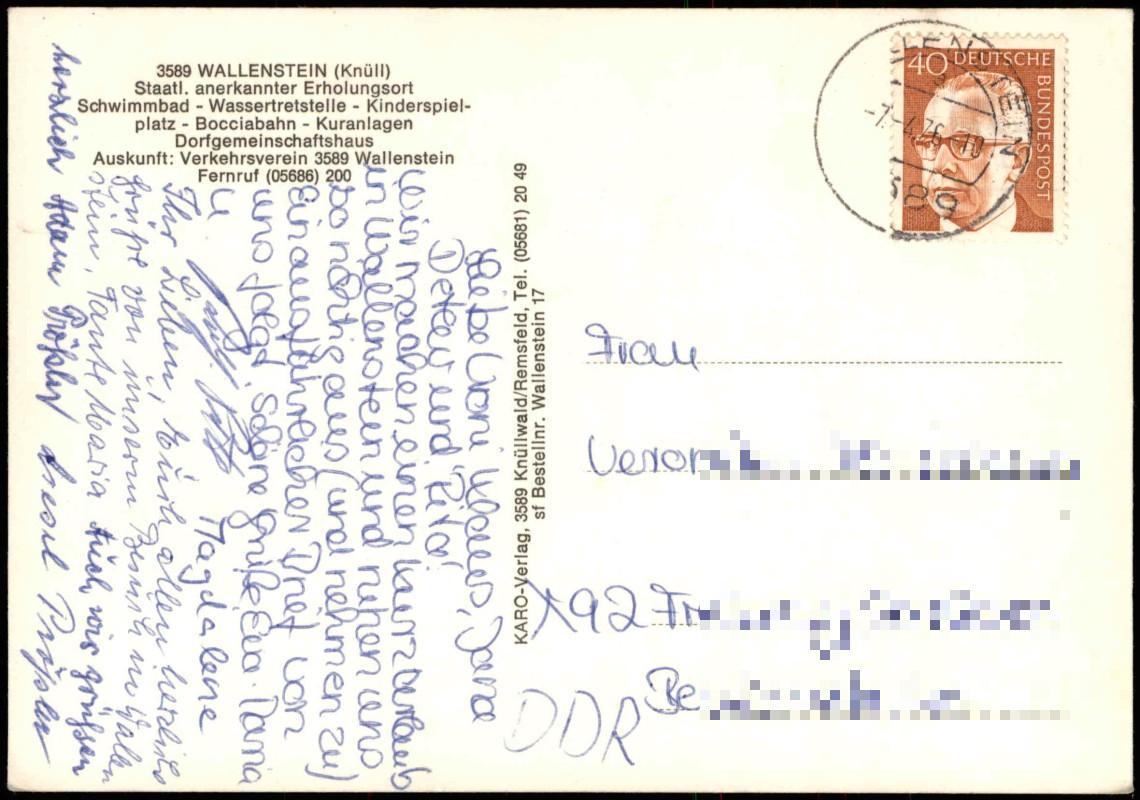 3589 WALLENSTEIN (Knüll)
Staatl. anerkannter Erholungsort
Schwimmbad - Wassertretstelle - Kinderspiel-
platz - Bocciabahn - Kuranlagen
Dorfgemeinschaftshaus
Auskunft: Verkehrsverein 3589 Wallenstein
Fernruf (05686) 200
Liebe Vroni, Klaus, Jana
Peter und Rita!
Wir machen einen Kurzurlaub
in Wallenstein und ruhen uns
so richtig aus (und nehmen zu)
Einen ausführlichen Brief von
uns folgt. Schöne Grüße Eva-Maria
u.
Magdalene
Ihr Lieben, Euch allen herzliche
Grüße von unserm Besuch in Wallen
stein, Tante Maria Auch wir grüssen
herzlich Adam Prößler Liesel Prößler
KARO-Verlag, 3589 Knüllwald/Remsfeld, Tel. (05681) 20 49
sf Bestellnr. Wallenstein 17
40 DEUTSCHE
BUNDESPOST
WALLENSTEIN
-7.-4.76-10
3589
Frau
Veron
X92 Fr
Be
DDR